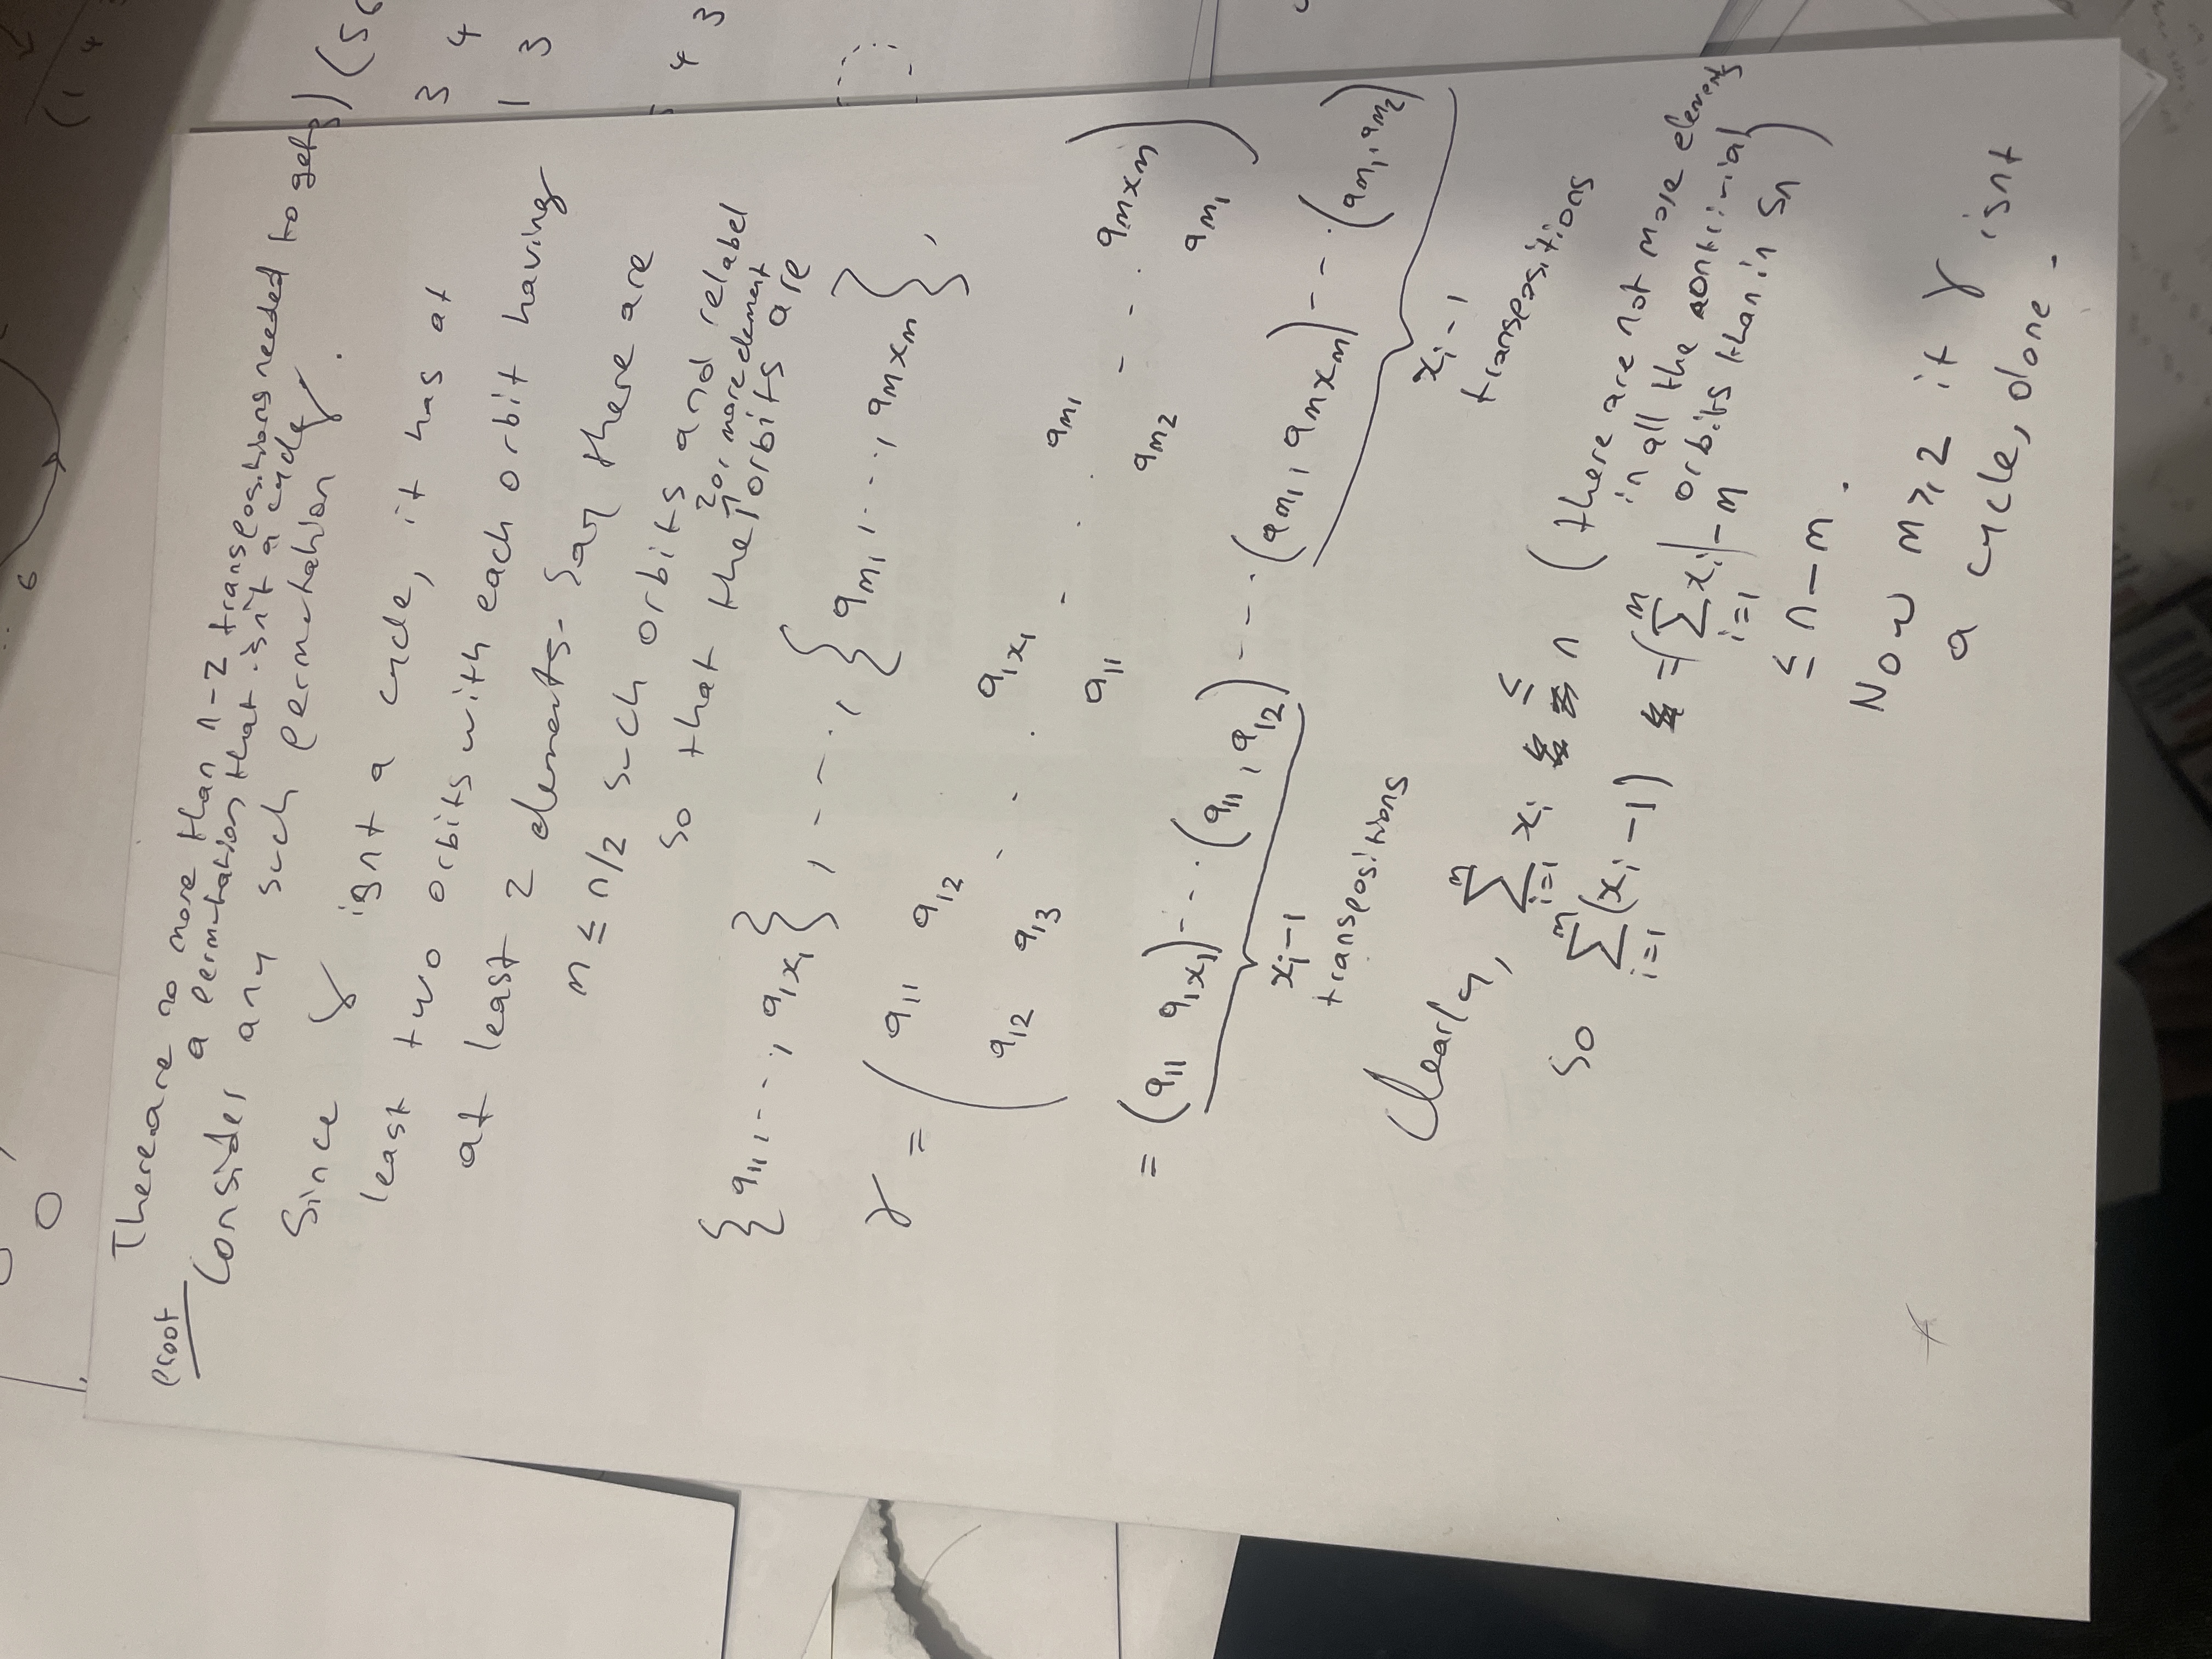 6
(1 4
There are no more than n-2 transpositions needed to get
a permutation that isn't a cycle
proof
Consider any such permutation γ.
Since γ isnt a cycle, it has at
least two orbits with each orbit having
at least 2 elements. Say there are
m ≤ n/2 such orbits and relabel
so that the 2 or more element orbits are
{a₁₁, ..., a₁ₓ₁}, ..., {aₘ₁, ..., aₘₓₘ},
γ = ( a₁₁ a₁₂ ... a₁ₓ₁ ... aₘ₁ ... aₘₓₘ
a₁₂ a₁₃ a₁₁ aₘ₂ aₘ₁ )
= (a₁₁ a₁ₓ₁) ... (a₁₁, a₁₂) ... (aₘ₁, aₘₓₘ) ... (aₘ₁, aₘ₂)
xᵢ-1
transpositions
xᵢ-1
transpositions
Clearly, Σᵢ₌₁ᵐ xᵢ ≤ n (there are not more elements
in all the nontrivial
orbits than in Sn)
So Σᵢ₌₁ᵐ (xᵢ-1) = (Σᵢ₌₁ᵐ xᵢ) - m
≤ n-m.
Now m ≥ 2 if γ isnt
a cycle, done.
) (56
3 4
1 3
4 3